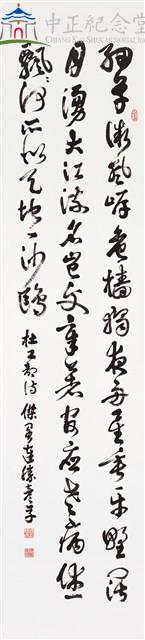 中正紀念堂
CHIANG KAI-SHEK MEMORIAL
細草微風岸危檣獨夜舟星垂平野闊
月湧大江流名豈文章著官應老病休
飄飄何所似天地一沙鷗 杜工部詩 連勝彥